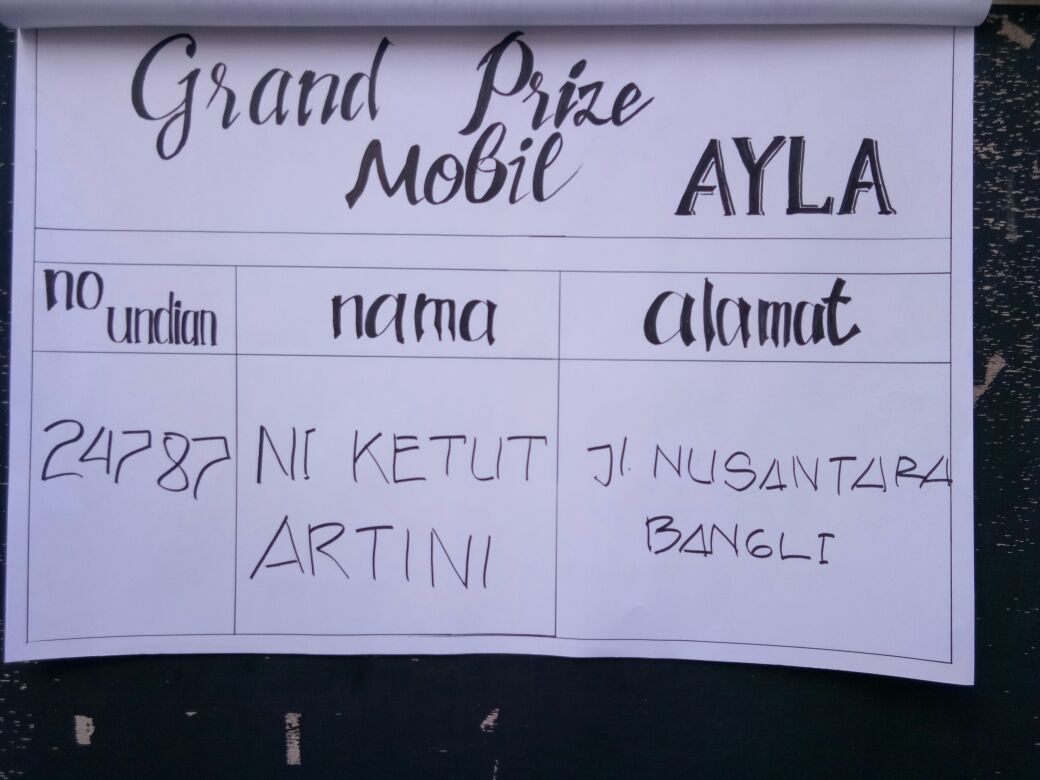 Grand Prize
Mobil AYLA
no undian nama alamat
24787 NI KETUT Jl. NUSANTARA
ARTINI BANGLI